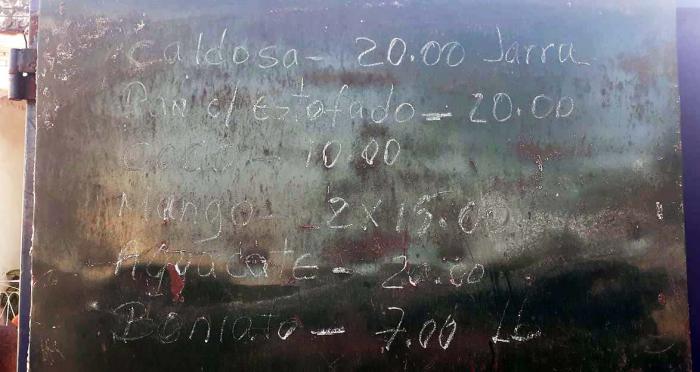 Caldosa - 20.00 Jarra
Pan c/ Estofado = 20.00
Coco - 10.00
Mango - 2x15.00
Aguacate - 20.00
Boniato - 7.00 Lb